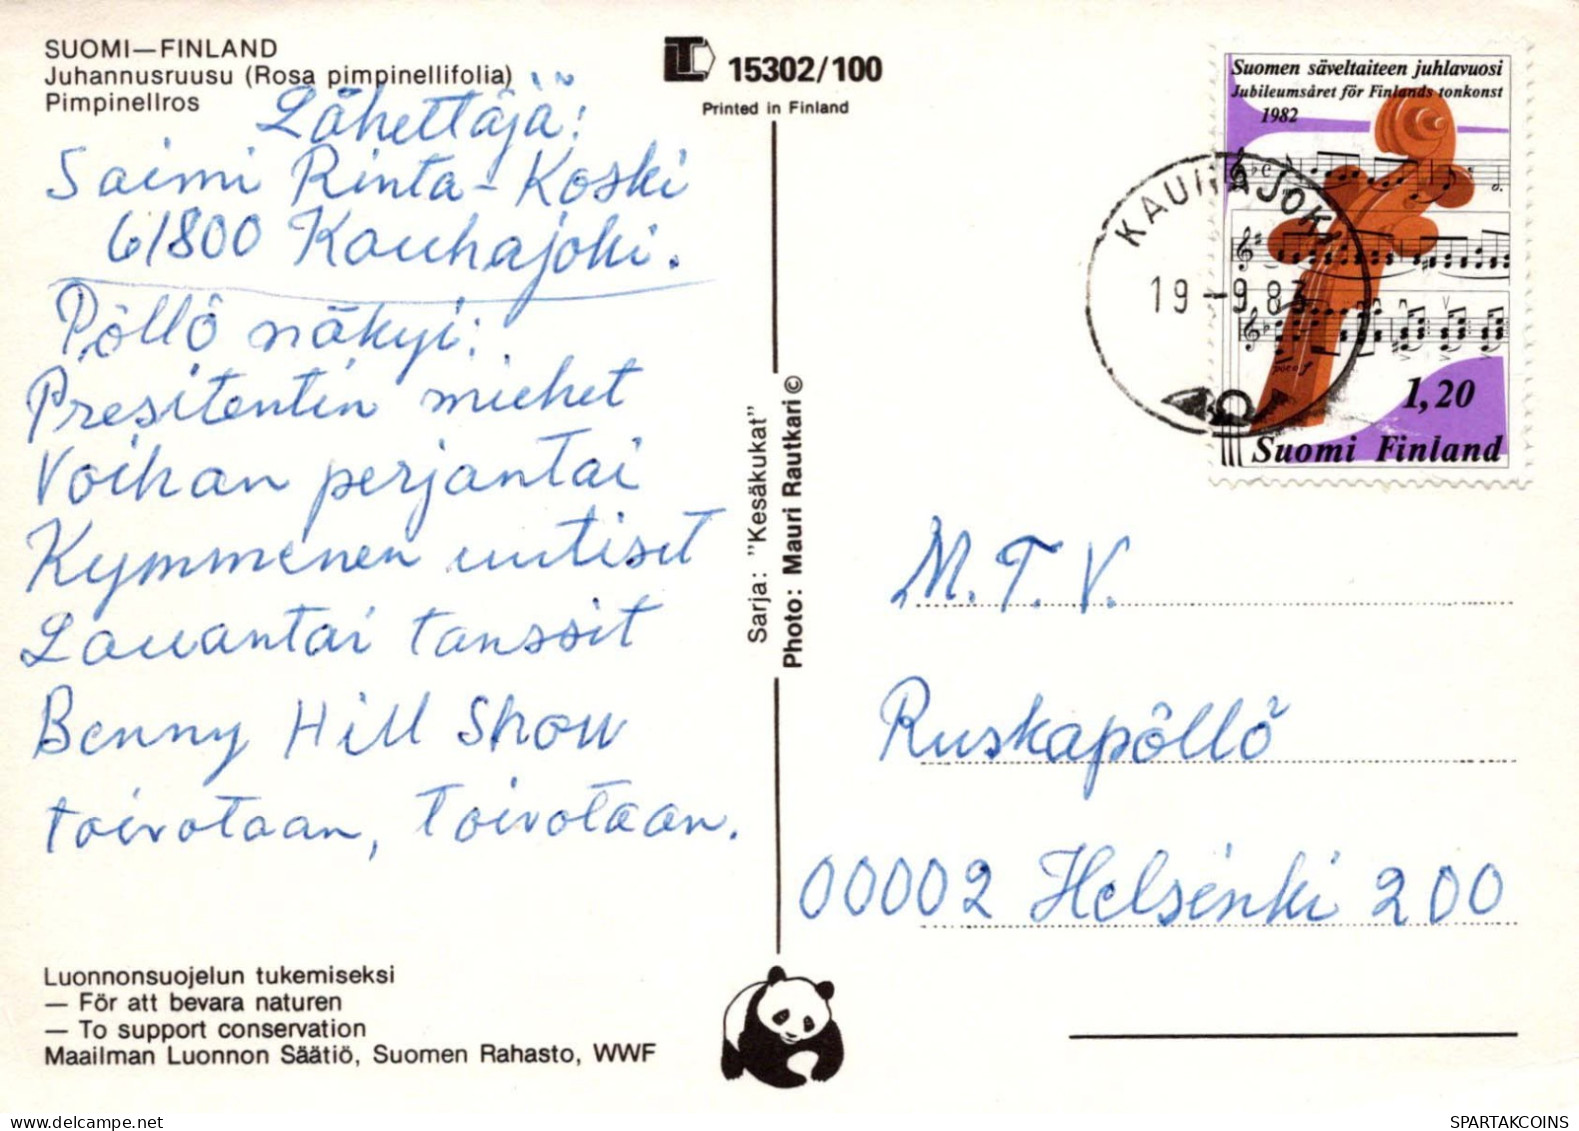 SUOMI—FINLAND
Juhannusruusu (Rosa pimpinellifolia)
Pimpinellros
Lähettäjä:
Saimi Rinta-Koski
61800 Kauhajoki.
Pöllö näkyi:
Presitentin miehet
Voihan perjantai
Kymmenen uutiset
Lauantai tanssit
Benny Hill Show
toivotaan, toivotaan.
Luonnonsuojelun tukemiseksi
— För att bevara naturen
— To support conservation
Maailman Luonnon Säätiö, Suomen Rahasto, WWF
15302/100
Printed in Finland
Sarja: "Kesäkukat"
Photo: Mauri Rautkari ©
Suomen säveltaiteen juhlavuosi
Jubileumsåret för Finlands tonkonst
1982
poco f
1,20
Suomi Finland
KAUHAJOKI
19-9.83
M.T.V.
Ruskapöllö
00002 Helsinki 200
SPARTAKCOINS